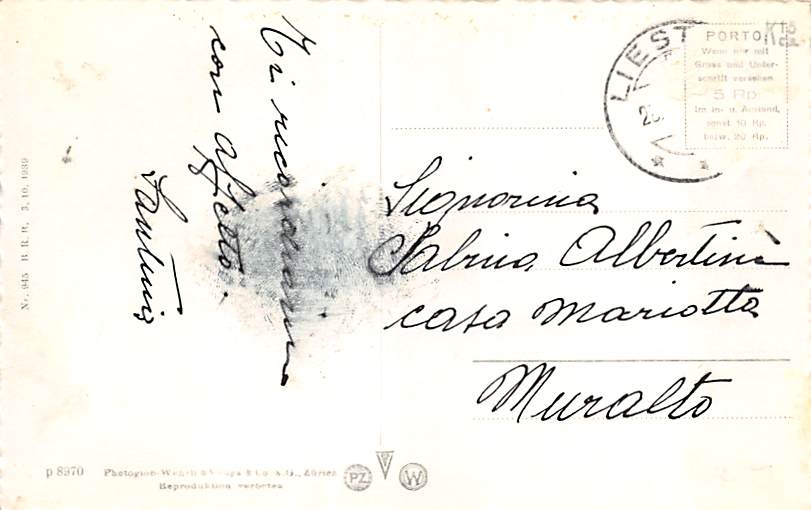 Ti ricordiamo
con affetto.
Signorina
Sabrina Albertini
casa Mariotta
Muralto
LIEST
PORTO
Wenn nur mit
Gruss und Unter-
schrift versehen
5 Rp.
Im In- u. Ausland,
sonst 10 Rp.
bezw. 20 Rp.
Nr. 945 B. R. B. 3. 10. 1939
p 8970 Photoglob-Wehrli & Vouga & Co. A.G., Zürich
Reproduktion verboten
PZ
W